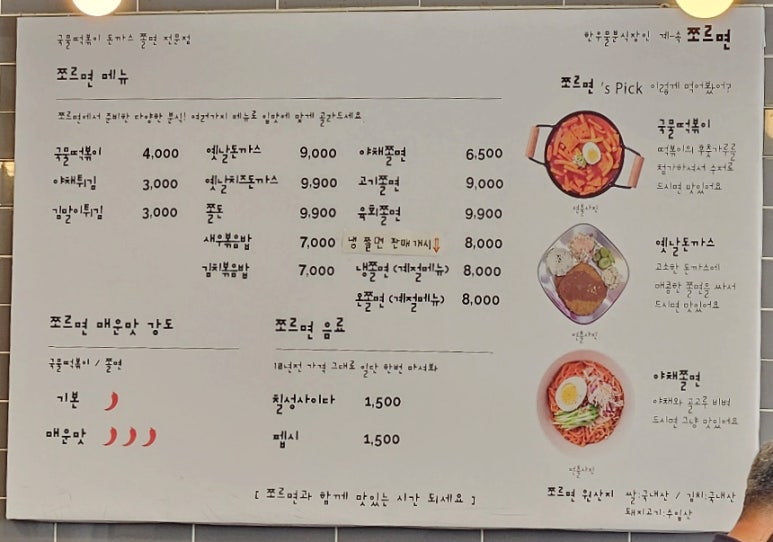 국물떡볶이 돈가스 쫄면 전문점
쪼르면 메뉴
쪼르면에서 준비한 다양한 분식! 여러가지 메뉴로 입맛에 맞게 골라드세요.
국물떡볶이 4,000
야채튀김 3,000
김말이튀김 3,000
옛날돈가스 9,000
옛날치즈돈가스 9,900
쫄돈 9,900
새우볶음밥 7,000
김치볶음밥 7,000
야채쫄면 6,500
고기쫄면 9,000
육회쫄면 9,900
냉쫄면 판매개시⇩ 8,000
냉쫄면 (계절메뉴) 8,000
온쫄면 (계절메뉴) 8,000
쪼르면 매운맛 강도
국물떡볶이 / 쫄면
기본
매운맛
쪼르면 음료
10년전 가격 그대로 일단 한번 마셔봐
칠성사이다 1,500
펩시 1,500
[ 쪼르면과 함께 맛있는 시간 되세요 ]
한우물분식장인 계-속 쪼르면
쪼르면 's Pick 이렇게 먹어봤어?
국물떡볶이
떡볶이의 후춧가루를
첨가하셔서 수저로
드시면 맛있어요
연출사진
옛날돈가스
고소한 돈가스에
매콤한 쫄면을 싸서
드시면 맛있어요
연출사진
야채쫄면
야채와 골고루 비벼
드시면 그냥 맛있어요
연출사진
쪼르면 원산지 쌀:국내산 / 김치:국내산
돼지고기:수입산